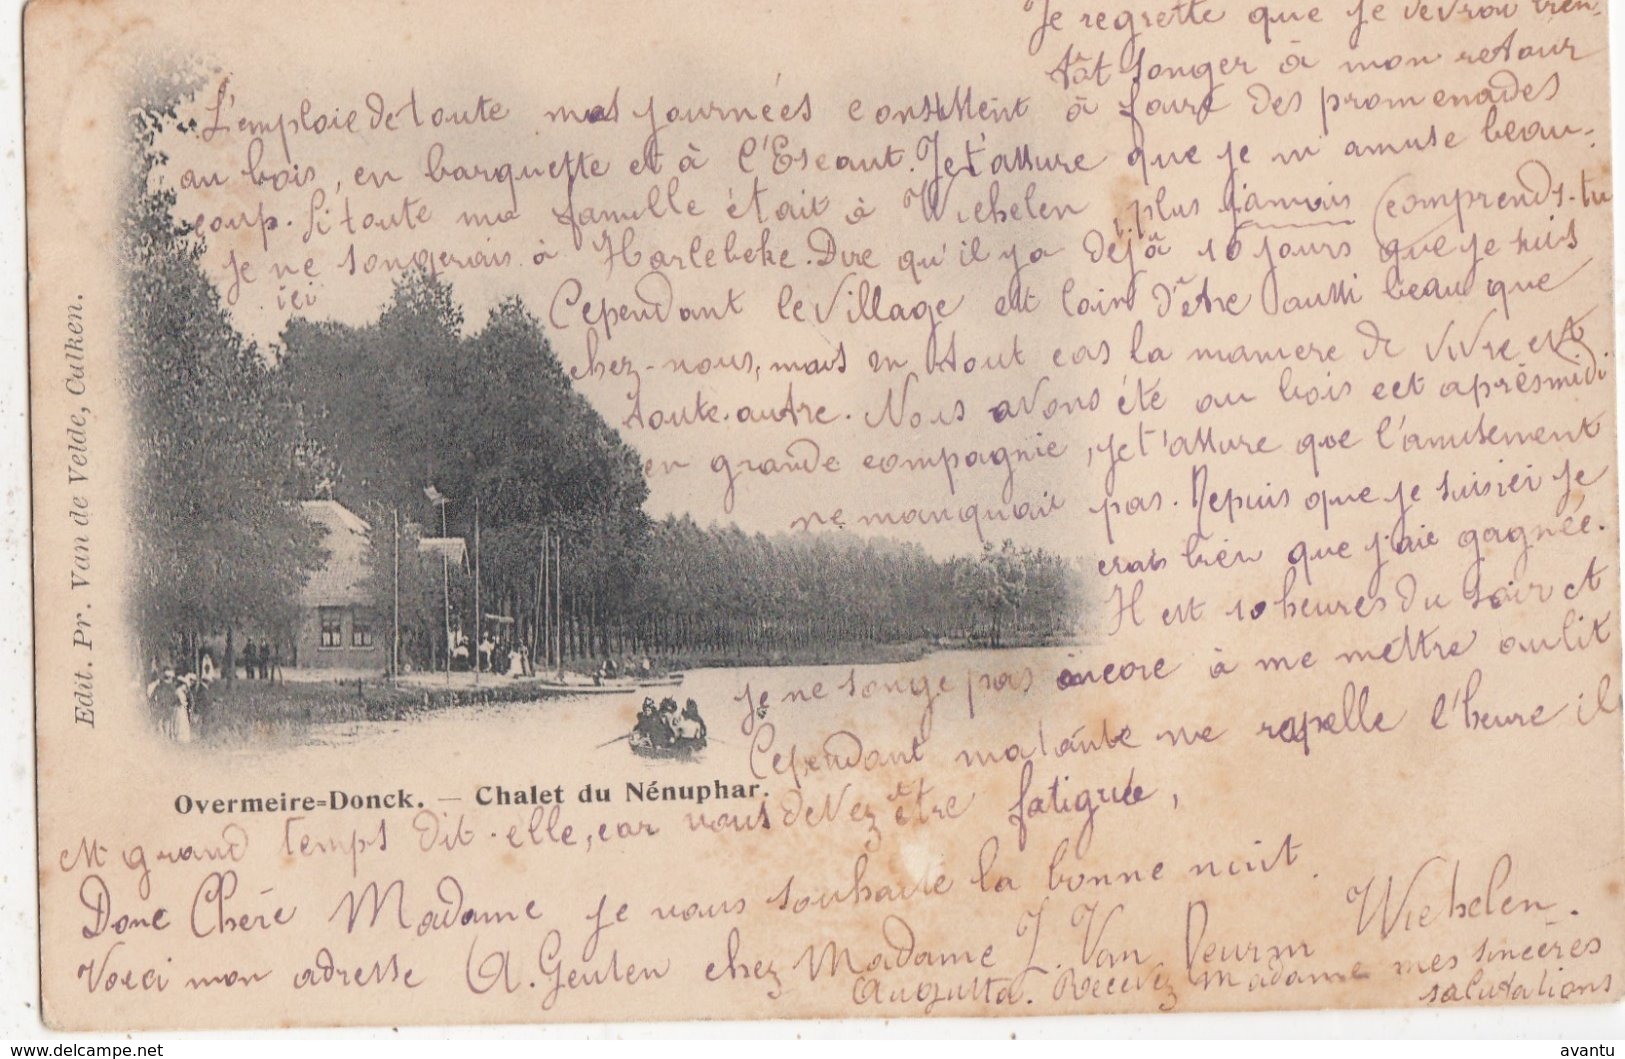 Je regrette que je devrai bien-
tôt songer à mon retour
L'emploie de toute mes journées consistent à faire des promenades
au bois, en barquette et à l'Escaut. Je t'assure que je m'amuse beau-
coup. Si toute ma famille était à Wichelen, plus jamais (comprends-tu
je ne songerais à Harlebeke. Dire qu'il ya déjà 10 jours que je suis
ici
Cependant le village est loin d'être aussi beau que
chez-nous, mais en tout cas la maniere de vivre est
toute-autre. Nous avons été au bois cet aprèsmidi
en grande compagnie, je t'assure que l'amusement
ne manquait pas. Depuis que je suis ici je
crois bien que j'aie gagnée.
Il est 10 heures du soir et
je ne songe pas encore à me mettre au lit
Cependant ma tante me rapelle l'heure il
est grand temps dit-elle, car vous devez être fatiguée,
Donc Chère Madame je vous souhaite la bonne nuit.
Voici mon adresse (A. Geulen chez Madame J. Van Deurm Wichelen.
Augusta. Recevez Madame mes sincères
salutations
Overmeire-Donck. — Chalet du Nénuphar.
Edit. Pr. Van de Velde, Calken.
https://www.delcampe.net
avantu